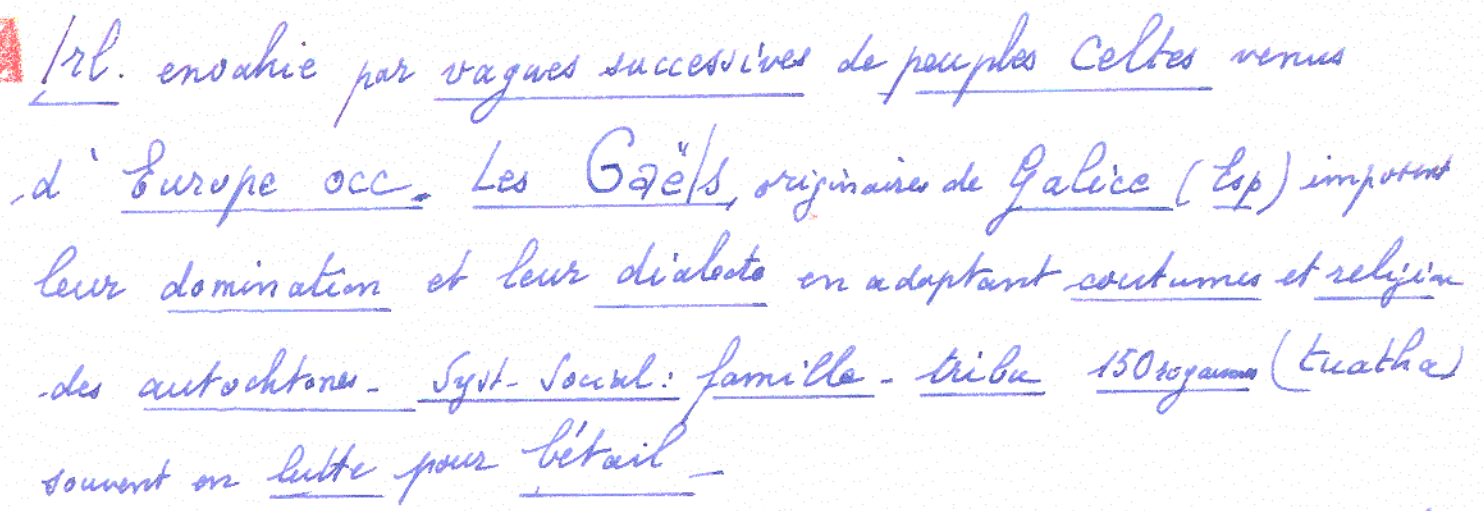 Irl. envahie par vagues successives de peuples Celtes venus
d'Europe occ. Les Gaëls, originaires de Galice (Esp) imposent
leur domination et leur dialecte en adoptant coutumes et religion
des autochtones - Syst. Social : famille - tribu 150 royaumes (tuatha)
souvent en lutte pour bétail -